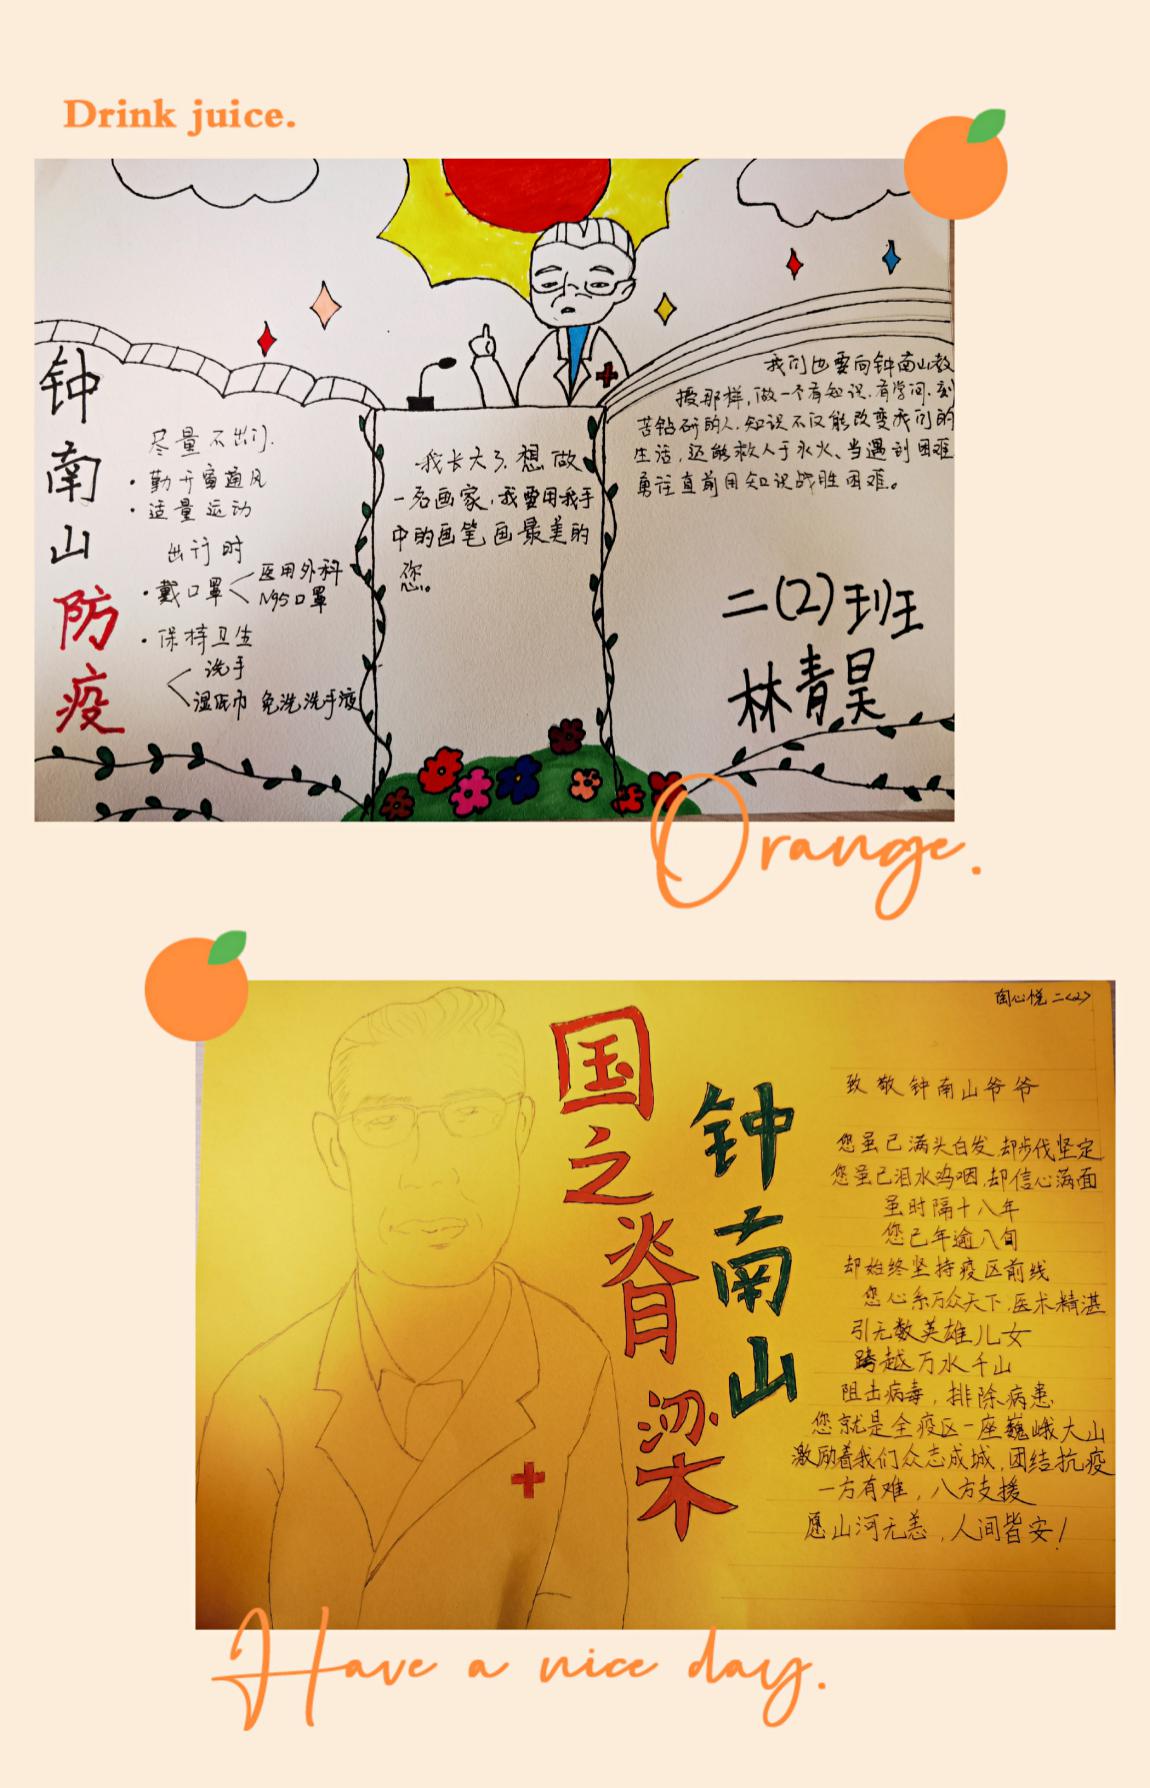 Drink juice.
钟
南
山
防
疫
尽量不出门.
·勤开窗通风
·适量运动
出行时
·戴口罩
医用外科
N95口罩
·保持卫生
洗手
湿纸巾 免洗洗手液
我长大了,想做
一名画家,我要用我手
中的画笔画最美的
您。
我们也要向钟南山教
授那样,做一个有知识.有学问.刻
苦钻研的人.知识不仅能改变我们的
生活,还能救人于水火、当遇到困难
勇往直前用知识战胜困难。
二(2)班
林青昊
Orange.
陶心悦 二<2>
国
之
脊
梁
钟
南
山
致敬钟南山爷爷
您虽已满头白发,却步伐坚定
您虽已泪水呜咽,却信心满面
虽时隔十八年
您已年逾八旬
却始终坚持疫区前线
您心系万众天下,医术精湛
引无数英雄儿女
跨越万水千山
阻击病毒,排除病患
您就是全疫区一座巍峨大山
激励着我们众志成城,团结抗疫
一方有难,八方支援
愿山河无恙,人间皆安!
Have a nice day.